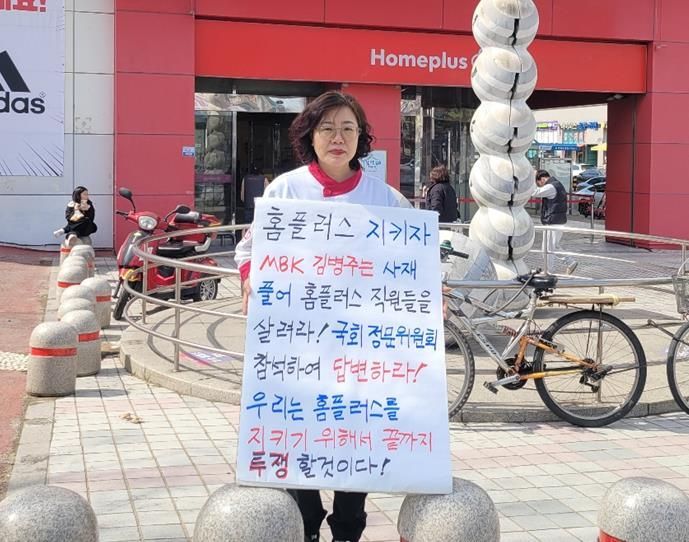 das
Homeplus
홈플러스 지키자
MBK 김병주는 사재
풀어 홈플러스 직원들을
살려라! 국회 정문위원회
참석하여 답변하라!
우리는 홈플러스를
지키기 위해서 끝까지
투쟁 할것이다!